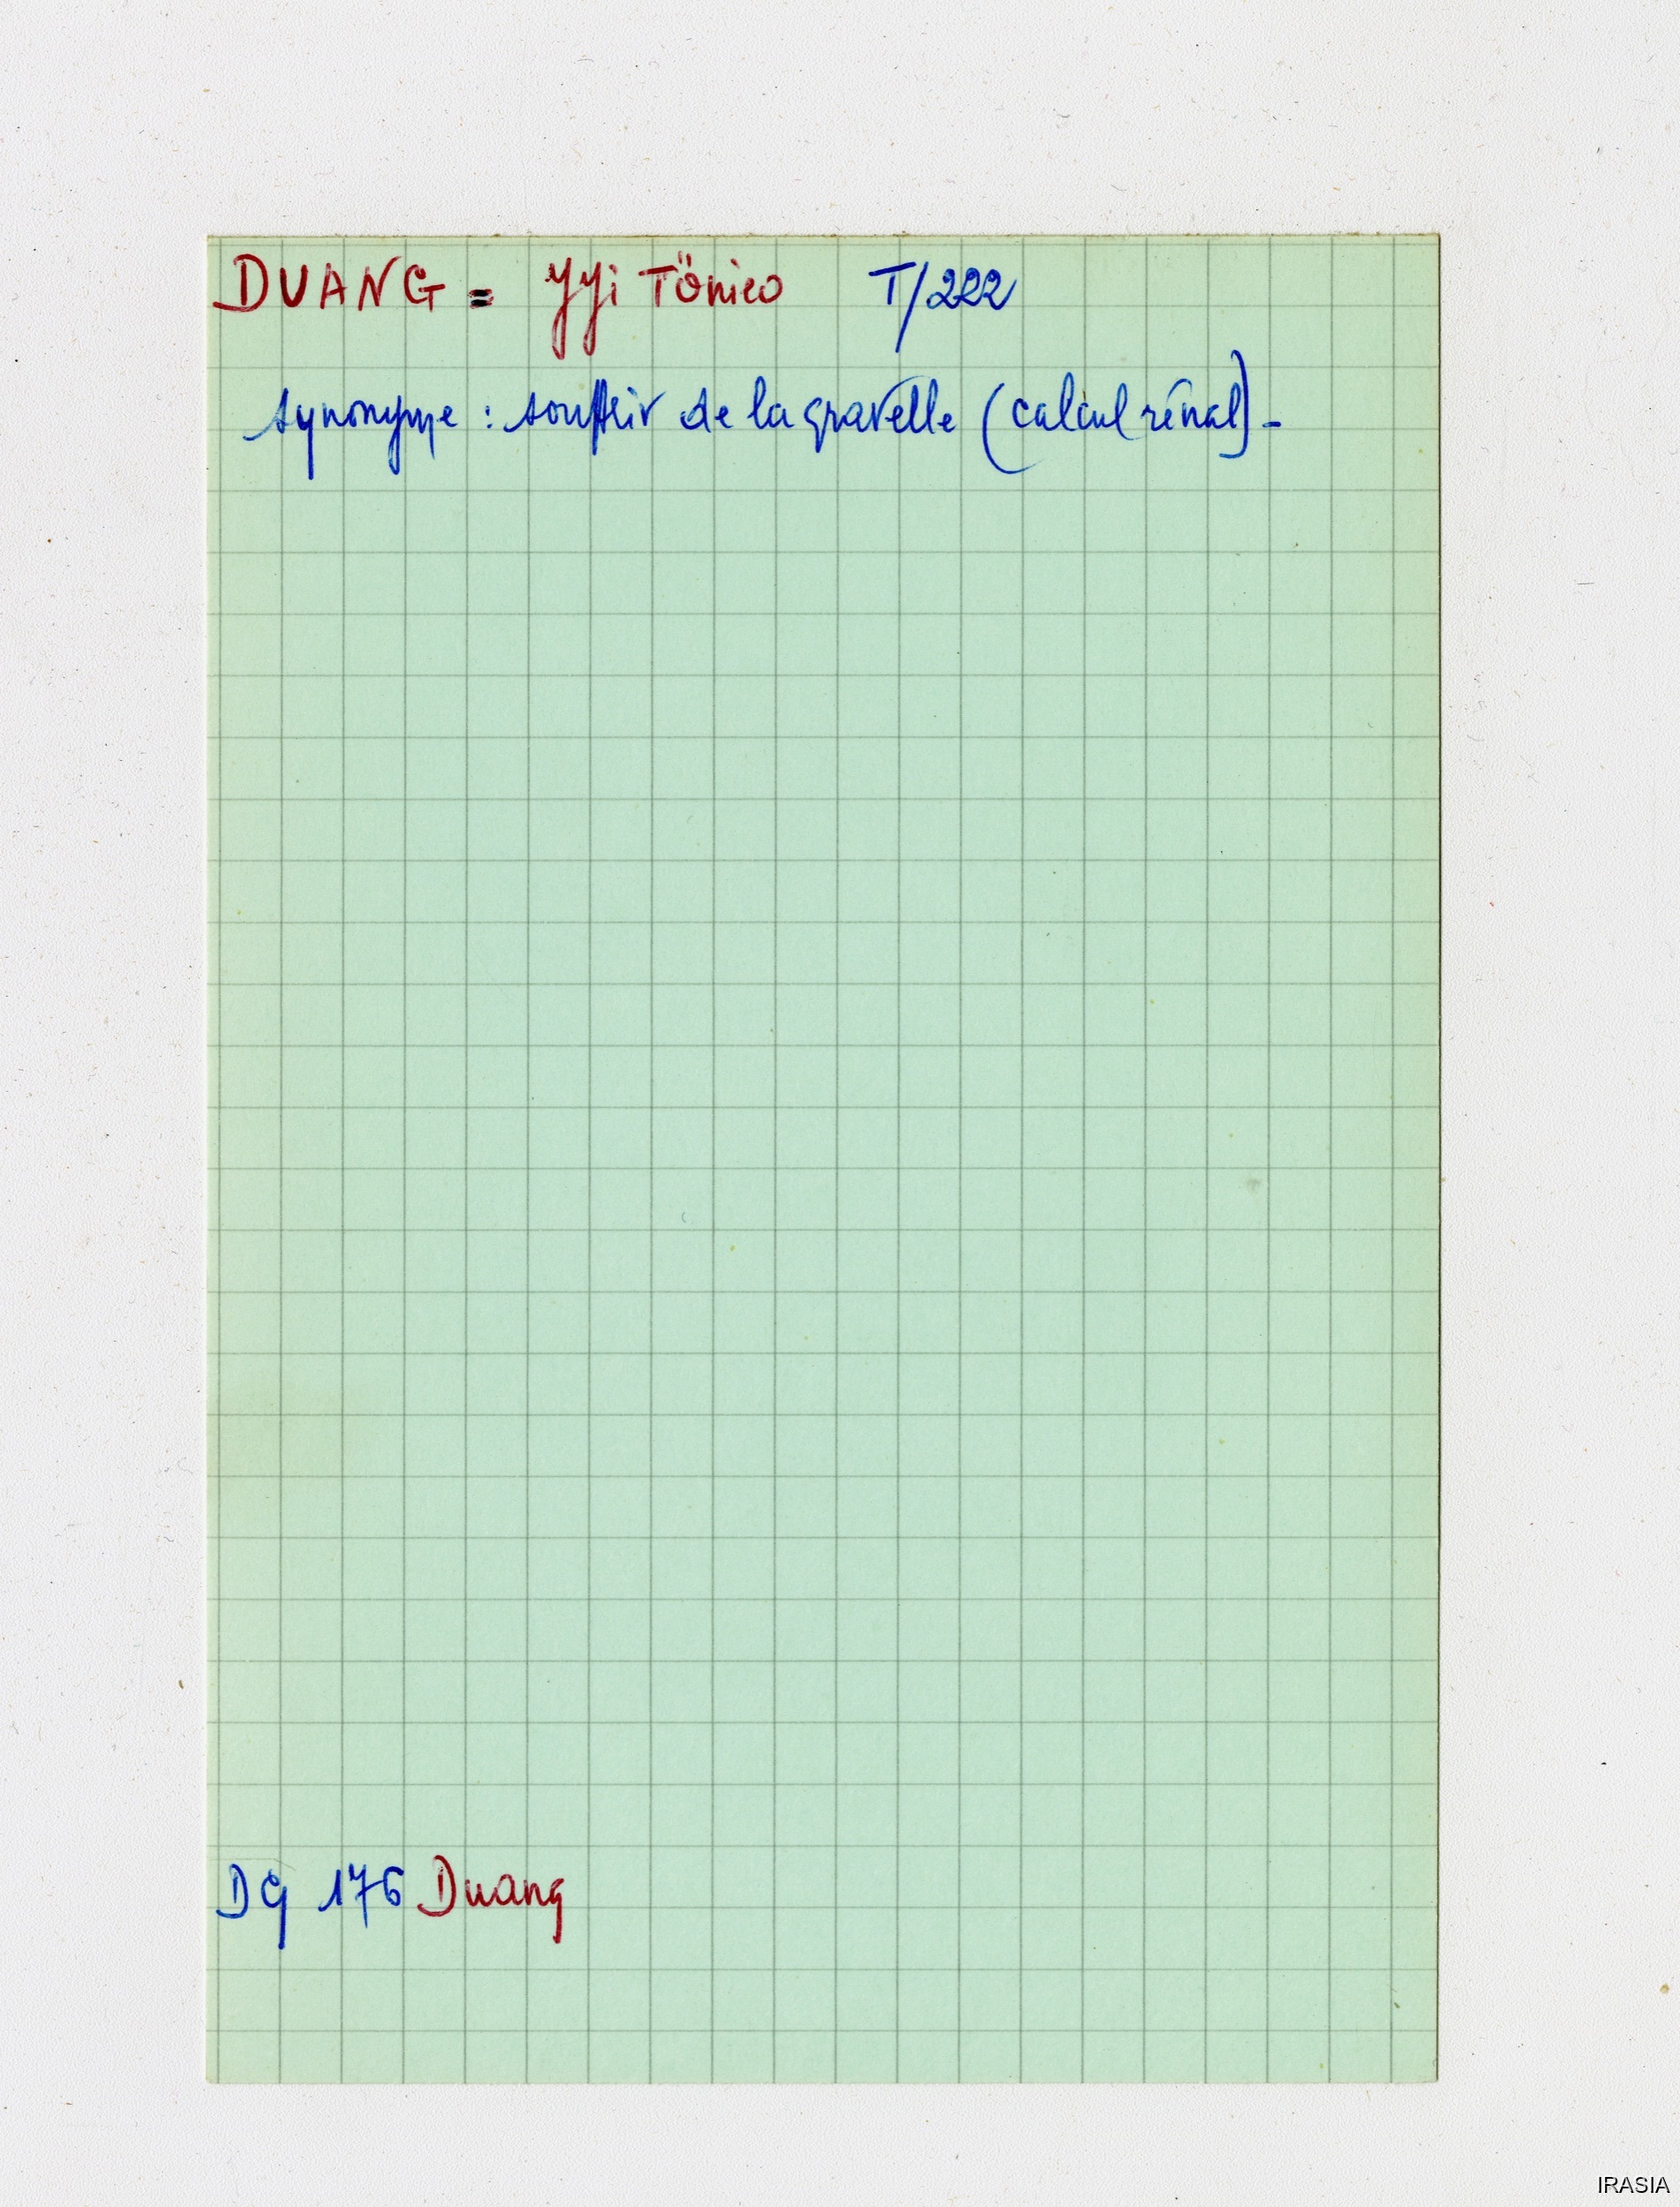 DUANG = YYi Tönieo T/222
synonyme : souffrir de la gravelle (calcul rénal) -
DG 176 Duang
IRASIA